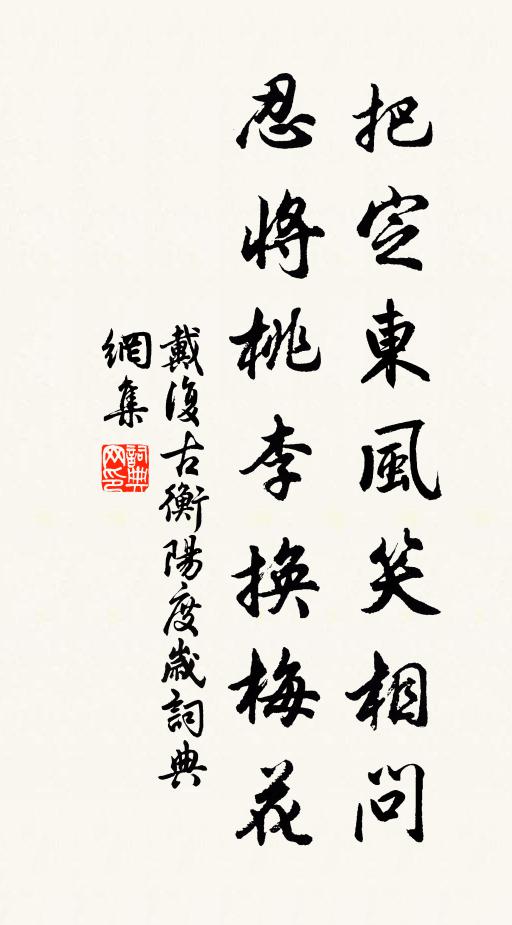 把定東風笑相問
忍將桃李換梅花
戴復古衡陽度歲詞典
網集
詞典网印